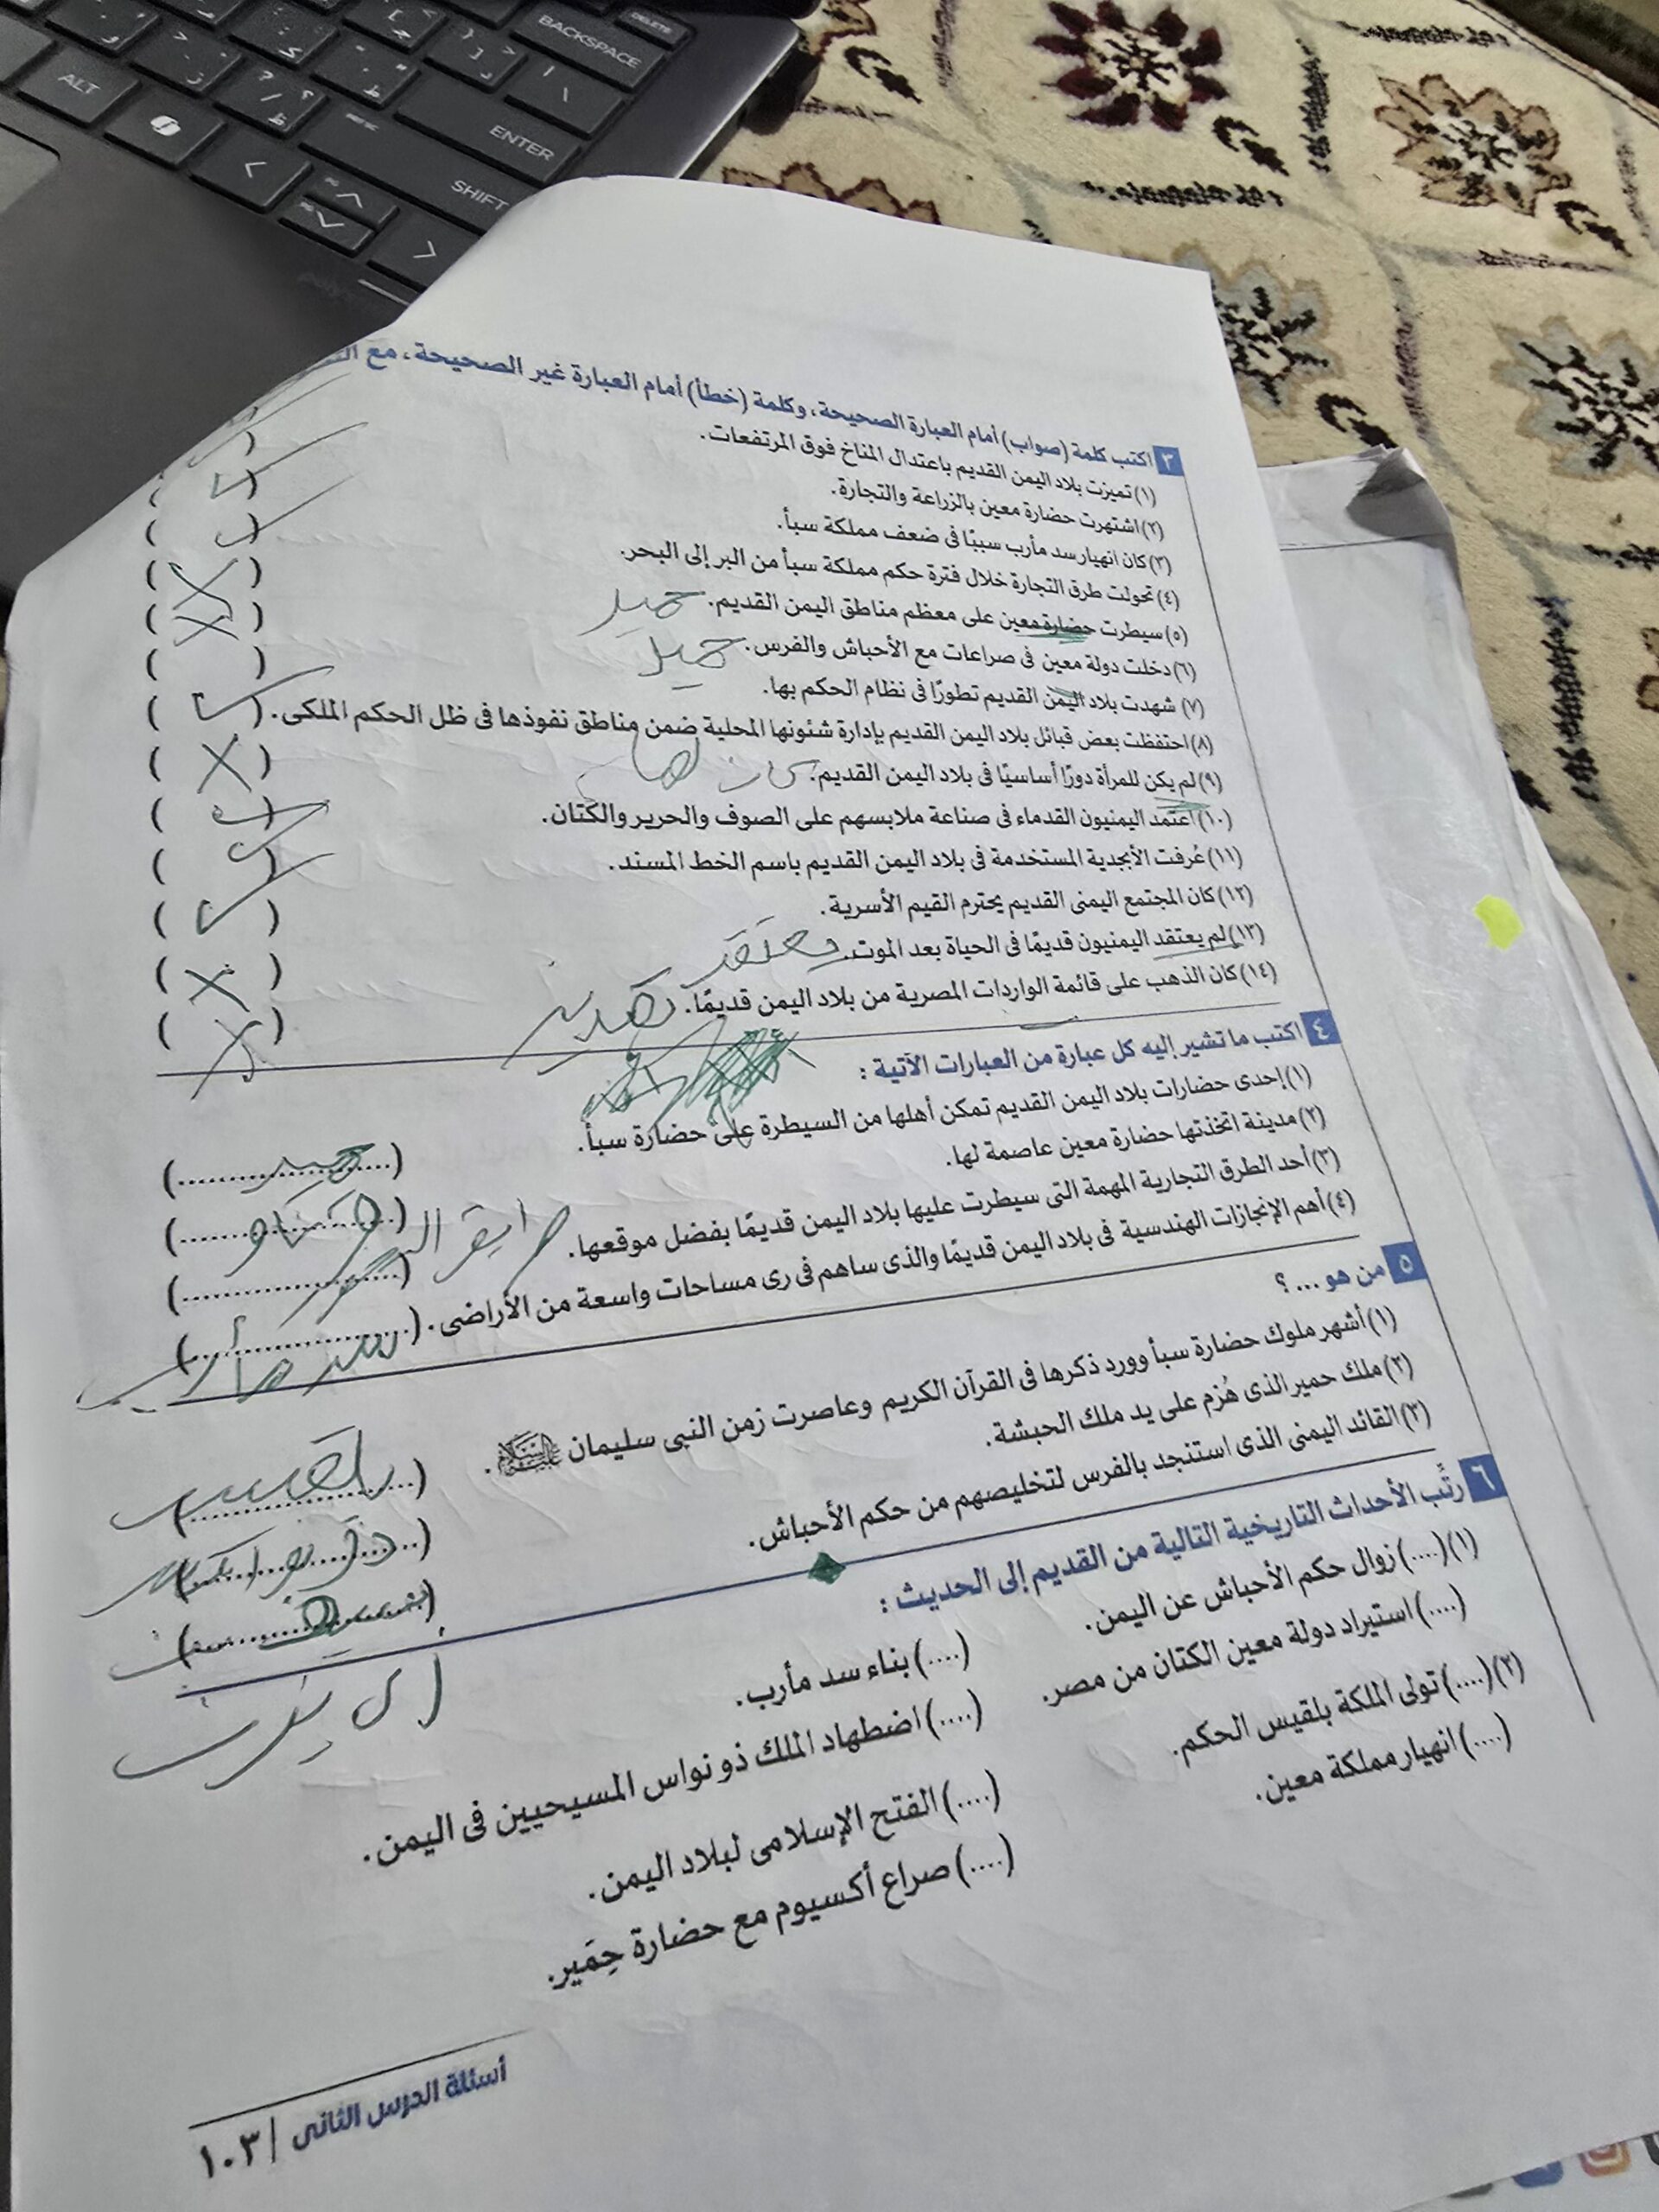 BACKSPACE
DELETE
ENTER
SHIFT
ALT
٣ اكتب كلمة (صواب) أمام العبارة الصحيحة، وكلمة (خطأ) أمام العبارة غير الصحيحة، مع
(١) تميزت بلاد اليمن القديم باعتدال المناخ فوق المرتفعات.
(٢) اشتهرت حضارة معين بالزراعة والتجارة.
(٣) كان انهيار سد مأرب سببًا فى ضعف مملكة سبأ.
(٤) تحولت طرق التجارة خلال فترة حكم مملكة سبأ من البر إلى البحر.
(٥) سيطرت حضارة معين على معظم مناطق اليمن القديم. حمير
(٦) دخلت دولة معين فى صراعات مع الأحباش والفرس. حمير
(٧) شهدت بلاد اليمن القديم تطورًا فى نظام الحكم بها.
(٨) احتفظت بعض قبائل بلاد اليمن القديم بإدارة شئونها المحلية ضمن مناطق نفوذها فى ظل الحكم الملكى.
(٩) لم يكن للمرأة دورًا أساسيًا فى بلاد اليمن القديم. كان لها
(١٠) اعتمد اليمنيون القدماء فى صناعة ملابسهم على الصوف والحرير والكتان.
(١١) عُرفت الأبجدية المستخدمة فى بلاد اليمن القديم باسم الخط المسند.
(١٢) كان المجتمع اليمنى القديم يحترم القيم الأسرية.
(١٣) لم يعتقد اليمنيون قديمًا فى الحياة بعد الموت. يعتقد
(١٤) كان الذهب على قائمة الواردات المصرية من بلاد اليمن قديمًا. تصدير
٤ اكتب ما تشير إليه كل عبارة من العبارات الآتية :
(١) إحدى حضارات بلاد اليمن القديم تمكن أهلها من السيطرة على حضارة سبأ. (حمير)
(٢) مدينة اتخذتها حضارة معين عاصمة لها. (..........)
(٣) أحد الطرق التجارية المهمة التى سيطرت عليها بلاد اليمن قديمًا بفضل موقعها. (..........)
(٤) أهم الإنجازات الهندسية فى بلاد اليمن قديمًا والذى ساهم فى رى مساحات واسعة من الأراضى. (سد مأرب)
٥ من هو ... ؟
(١) أشهر ملوك حضارة سبأ وورد ذكرها فى القرآن الكريم وعاصرت زمن النبى سليمان عليه السلام. (بلقيس)
(٢) ملك حمير الذى هُزم على يد ملك الحبشة. (..........)
(٣) القائد اليمنى الذى استنجد بالفرس لتخليصهم من حكم الأحباش. (سيف
ذى يزن
٦ رتِّب الأحداث التاريخية التالية من القديم إلى الحديث :
(١) (....) زوال حكم الأحباش عن اليمن. (....) بناء سد مأرب.
(....) استيراد دولة معين الكتان من مصر. (....) اضطهاد الملك ذو نواس المسيحيين فى اليمن.
(٢) (....) تولى الملكة بلقيس الحكم. (....) الفتح الإسلامى لبلاد اليمن.
(....) انهيار مملكة معين. (....) صراع أكسيوم مع حضارة حِمْير.
أسئلة الدرس الثانى / ١٠٣